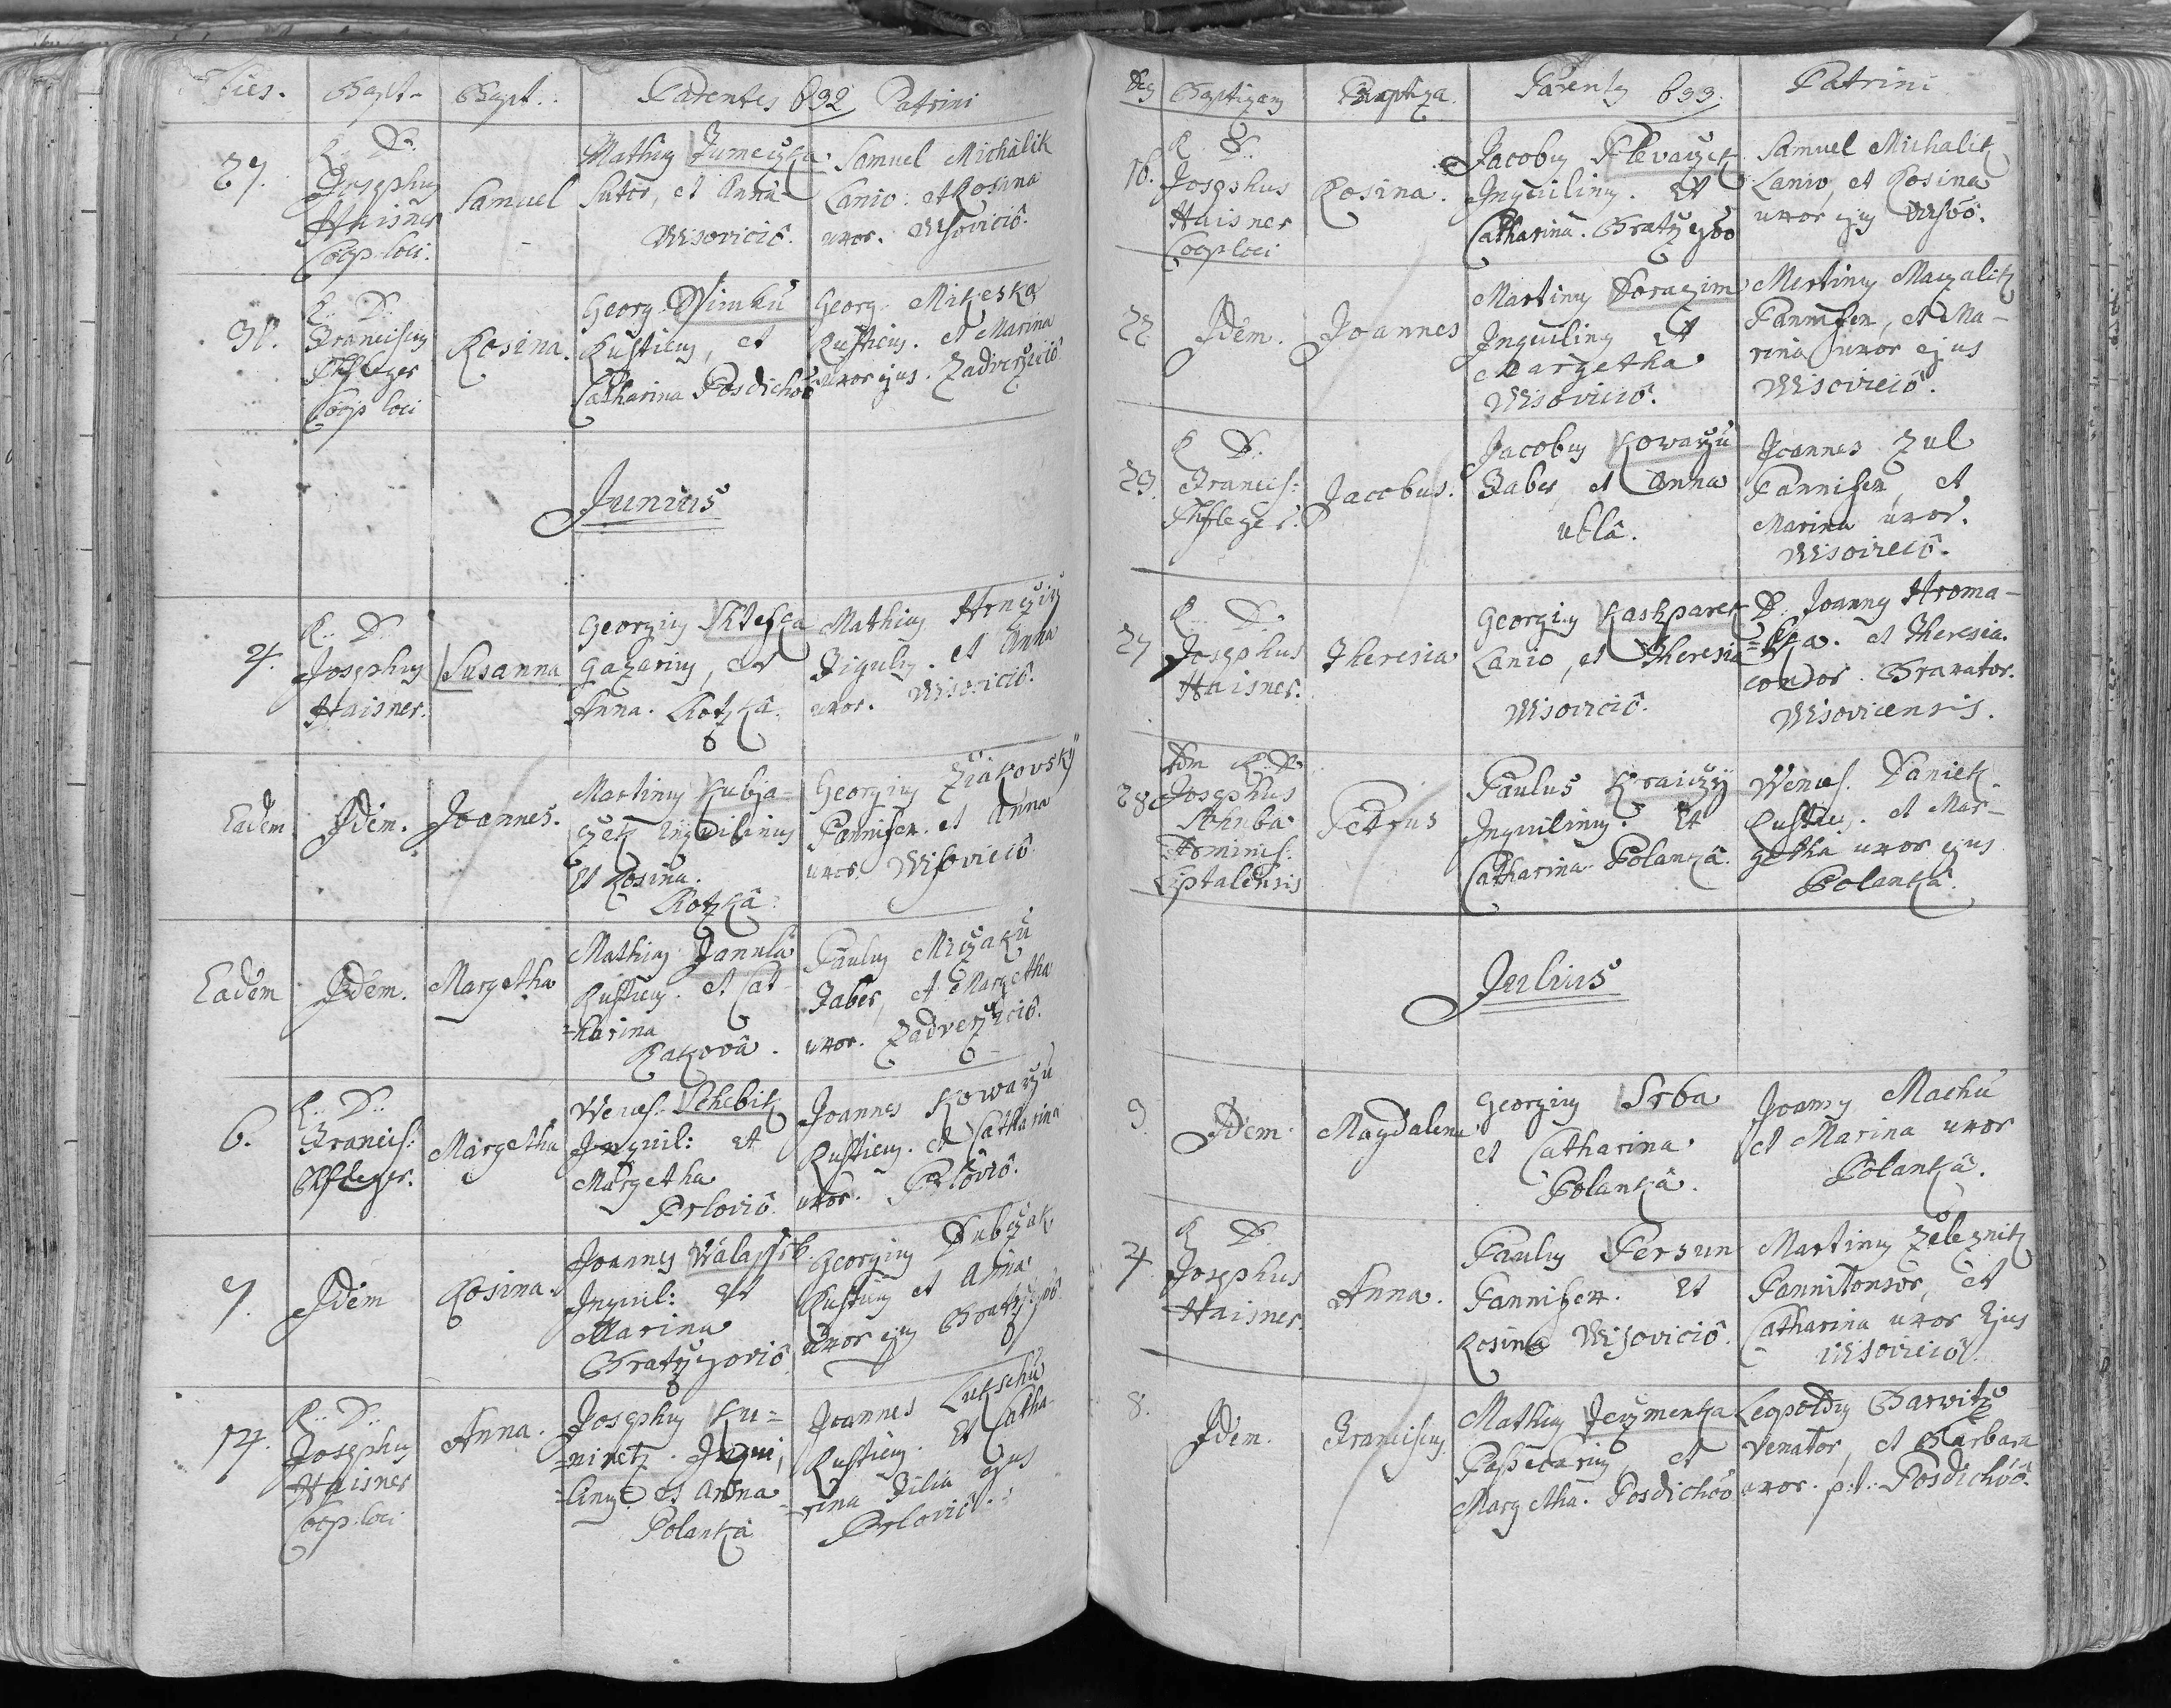 Dies. Bapt. Bapt. Parentes 632 Patrini
27.
R. D.
Josephus
Haisner
Coop. loci.
Samuel
Mathias
Sutor, et Anna
Wisoviciô.
Samuel Michalik
Lanio. et Rosina
uxor. Wisoviciô.
31.
R. D.
Franciscus
Pfleger
Coop loci
Rosina.
Georg. Winku
Rusticus, et
Catharina Posdichoô
Georg. Mikeska
Rusticus. et Marina
uxor ejus. Zadverziciô
Junius
4.
R. D.
Josephus
Haisner.
Susanna
Georgius
Gazarius, et
Anna. Lhotka.
Mathias Hrnczirz
Figulus. et Anna
uxor. Wisoviciô.
Eadem
Idem.
Joannes.
Martinus Kubja-
czek Inquilinus
Et Rosina.
Lhotka.
Georgius Ziakovsky
Pannifex. et Anna
uxor. Wisoviciô
Eadem
Idem.
Margetha
Mathias Janula
Rusticus. et Cat-
=harina
Rakovâ.
Paulus Miczaku
Faber, et Margetha
uxor. Zadverziciô.
6.
R. D.
Francis:
Pfleger.
Margetha
Wences. Schebik
Inquil: Et
Margetha
Prloviô.
Joannes Kowarzu
Rusticus. et Catharina
uxor. Prloviô.
7.
Idem
Rosina.
Joannes Walassik.
Inquil: Et
Marina
Bratrzegoviô
Georgius Dubczak
Rusticus et Anna
uxor ejus
14.
R. D.
Josephus
Haisner
Coop. loci
Anna.
Josephus Ku=
=niretz. Inqui,
=linus. et Anna
Polankâ
Joannes Lukschu
Rusticus. Et Catha-
=rina Filia ejus
Prloviô.
Dies Baptizans Baptiza. Parentes 633. Patrini
16.
R. D.
Josephus
Haisner
Coop loci
Rosina.
Jacobus Klevarzek
Inquilinus. Et
Catharina.
Samuel Michalik
Lanio, et Rosina
uxor ejus
22
Idem.
Joannes
Martinus Dorazim
Inquilinus Et
Margetha
Wisoviciô.
Martinus Maczalik
Pannifex, et Ma-
rina uxor ejus
Wisoviciô.
23.
R D.
Francis:
Pfleger.
Jacobus.
Jacobus Kowarzu
Faber, et Anna
ublâ.
Joannes Zul
Pannifex, et
Marina uxor.
Wisoviciô.
27
R. D.
Josephus
Haisner.
Theresia
Georgius Kashparek
Lanio, et Theresia
Wisoviciô.
D. Joannes Hroma-
=dka. et Theresia.
Granator.
Wisovicensis.
28
Adm R. D.
Josephus
Dominus.
Liptalensis
Petrus
Paulus Kraiczy
Inquilinus. Et
Catharina Polankâ.
Wences. Daniek
Rusticus. et Mar-
getha uxor ejus
Polankâ.
Julius
3
Idem.
Magdalena
Georgius Srba
et Catharina
Polankâ.
Joannes Machu
et Marina uxor
Polankâ.
4
R D.
Josephus
Haisner.
Anna.
Paulus Persun
Pannifex. Et
Rosina Wisoviciô.
Martinus Zeleznik
Pannitonsor, et
Catharina uxor Ejus
Wisoviciô.
8.
Idem.
Franciscus
Mathias Jeczmenka
et
Margetha. Posdichoô
Leopoldus Barwitz
Venator, et Barbara
uxor. p. t. Posdichoô.